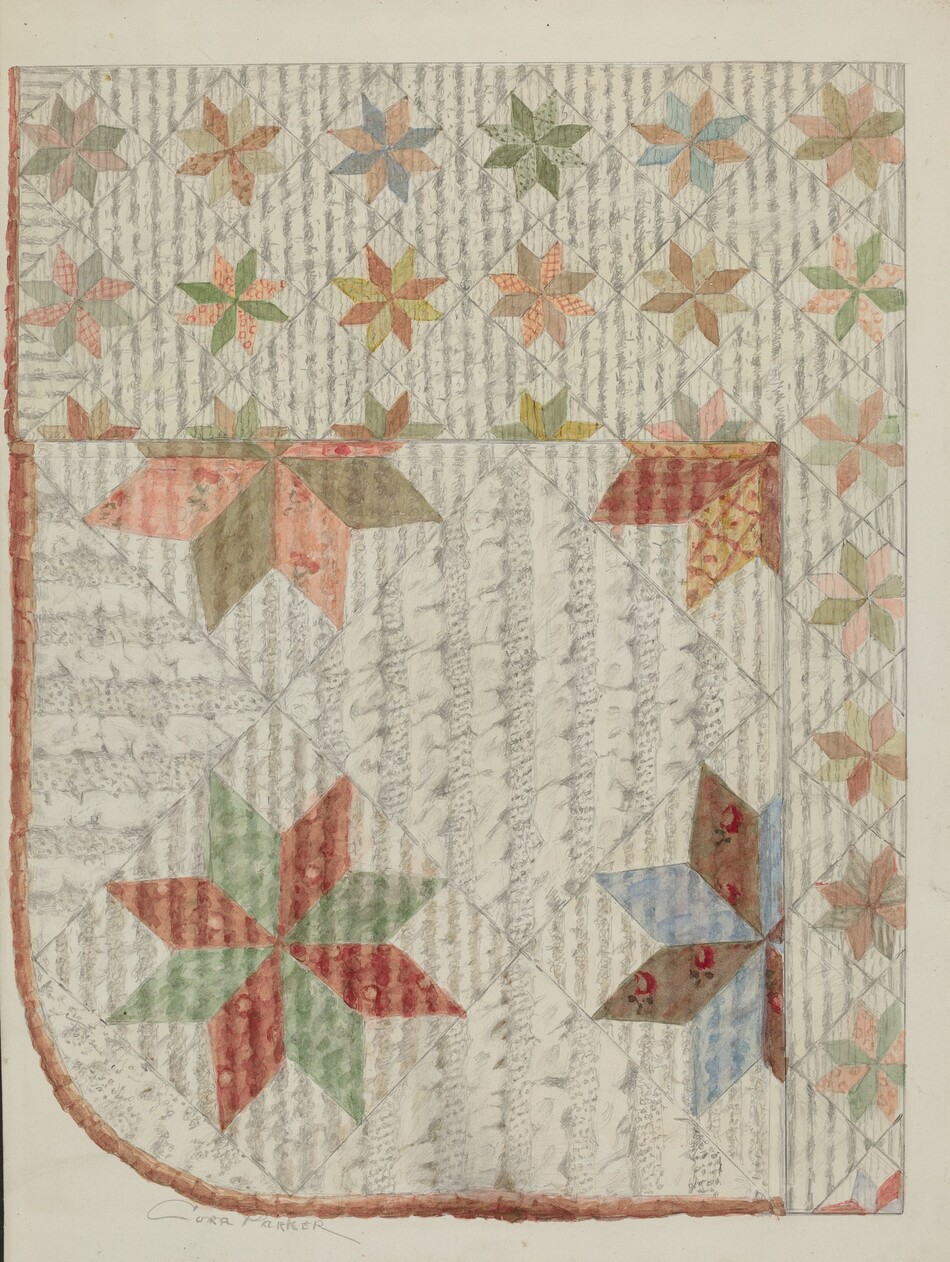 Cora Parker